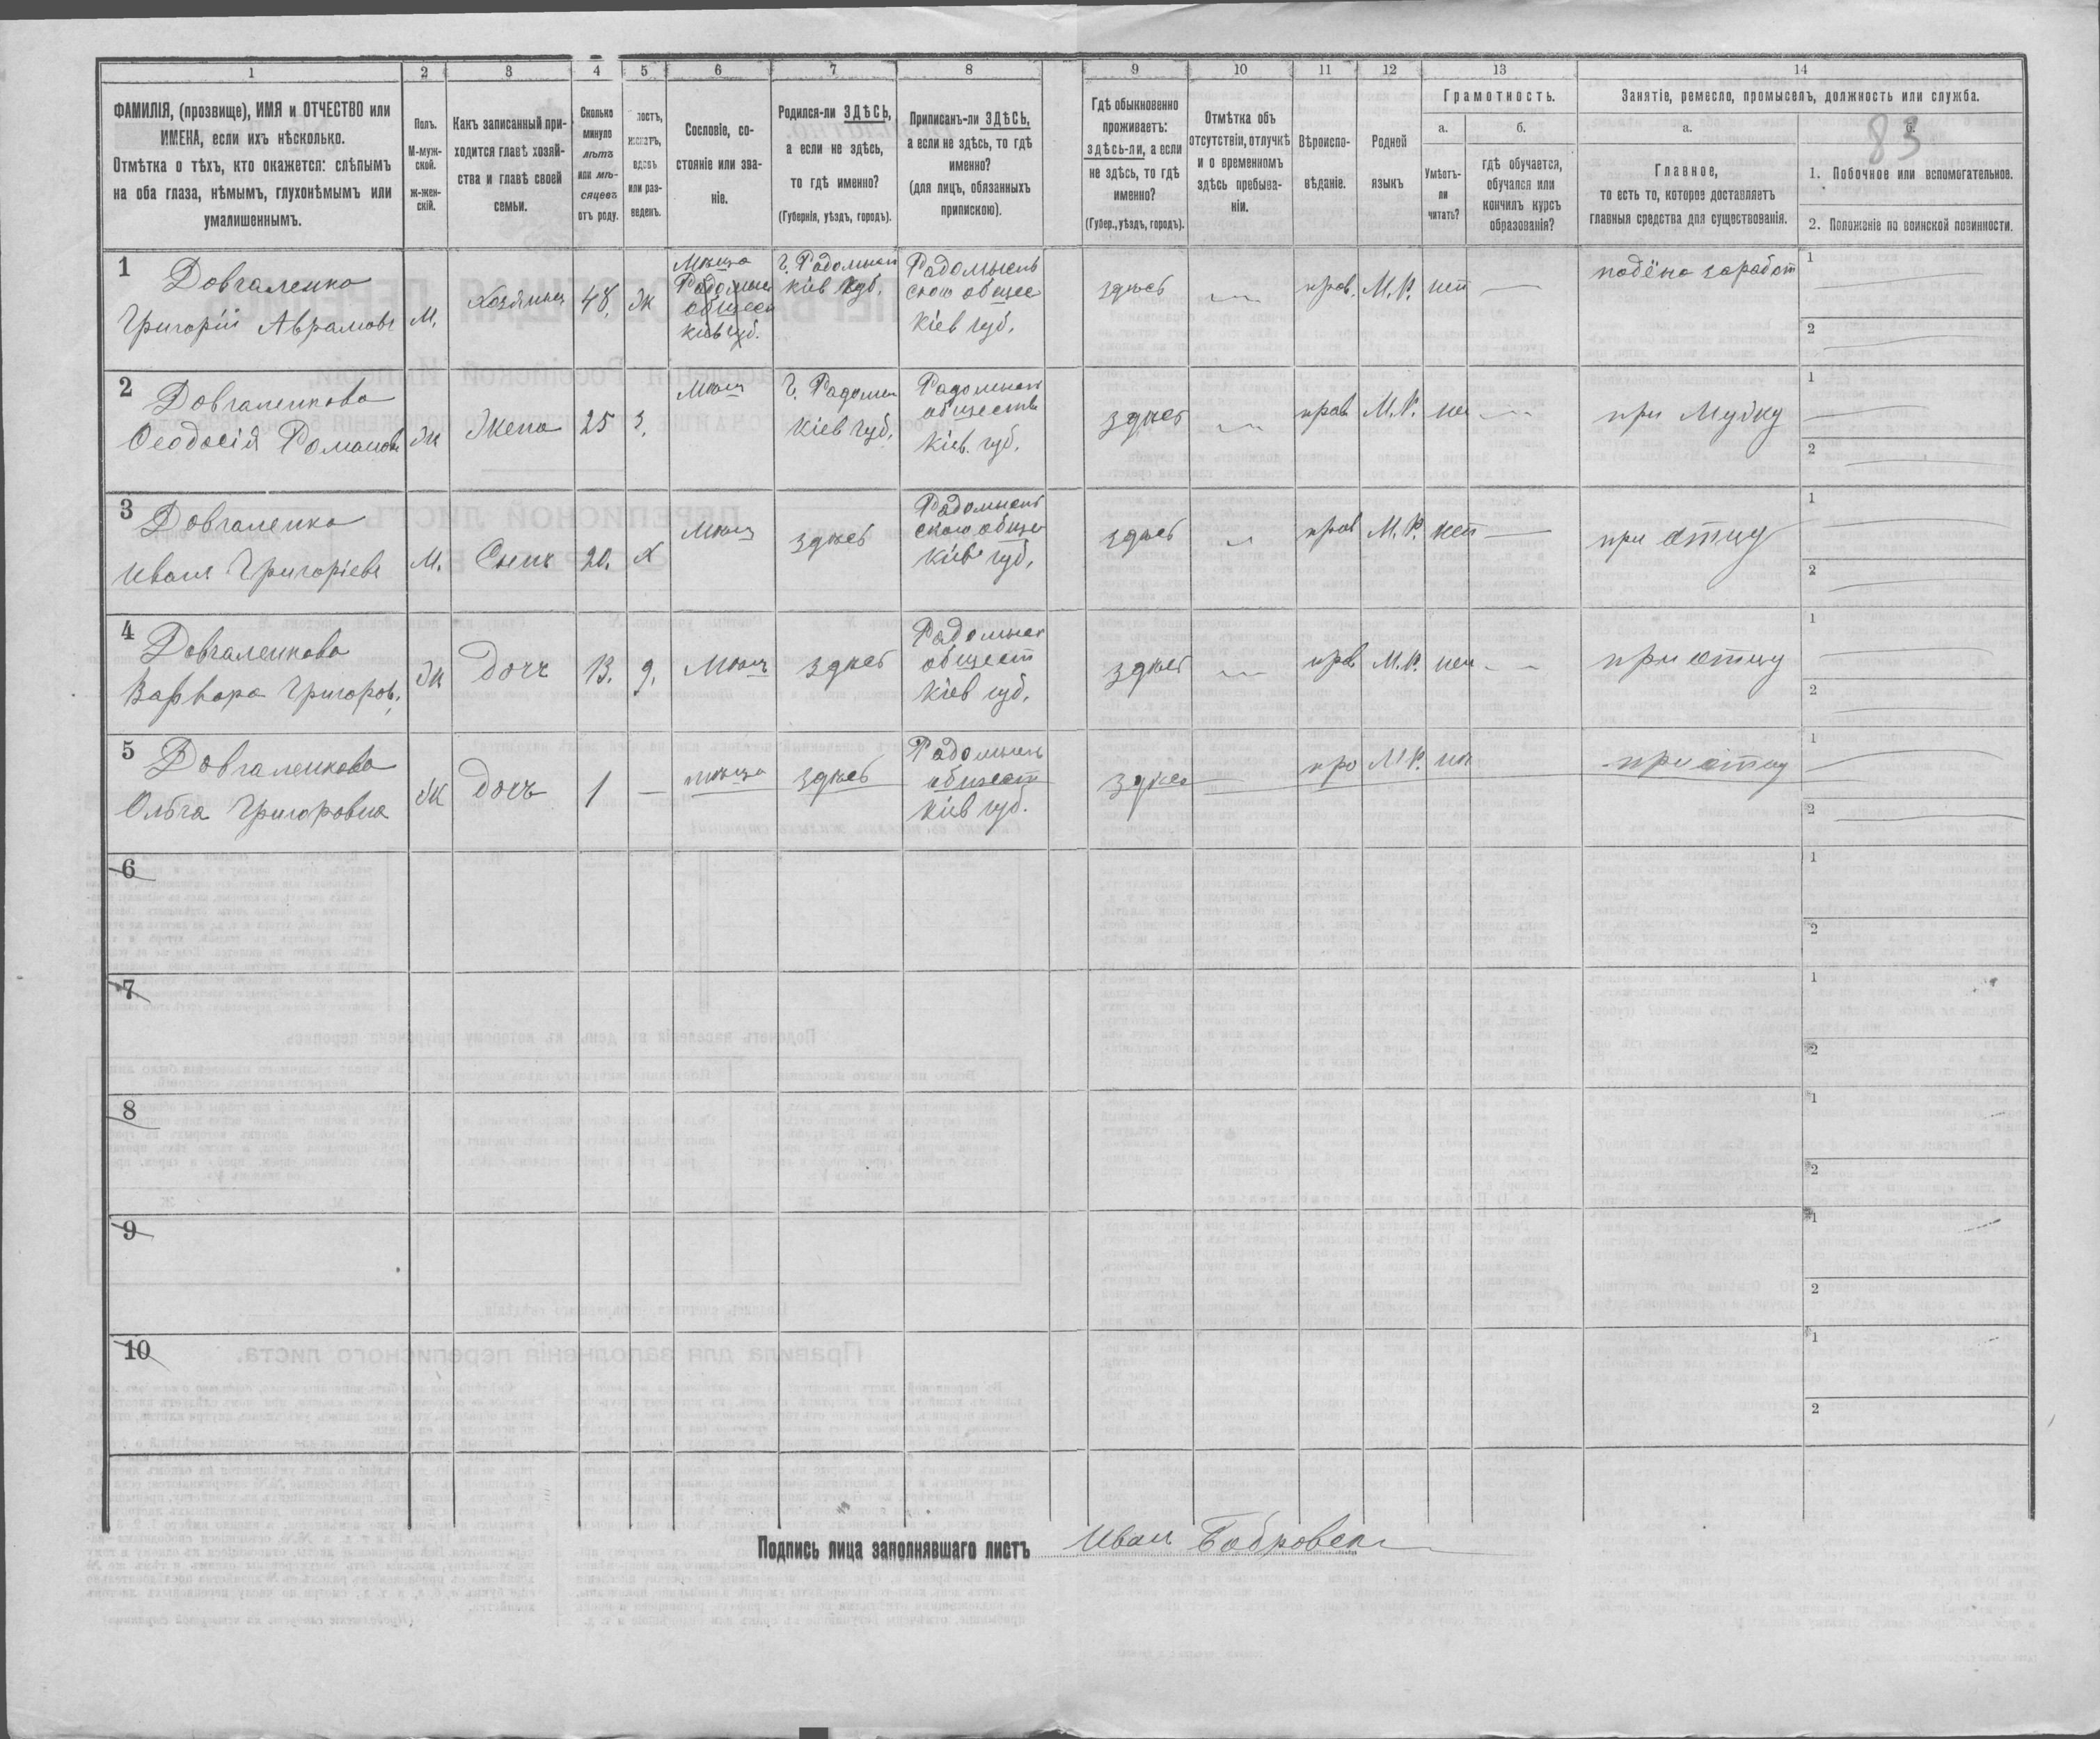 1 2 3 4 5 6 7 8 9 10 11 12 13 14
ФАМИЛІЯ, (прозвище), ИМЯ и ОТЧЕСТВО или
ИМЕНА, если ихъ нѣсколько.
Отмѣтка о тѣхъ, кто окажется: слѣпымъ
на оба глаза, нѣмымъ, глухонѣмымъ или
умалишеннымъ.
Полъ.
М-муж-
ской.
Ж-жен-
скій.
Какъ записанный при-
ходится главѣ хозяй-
ства и главѣ своей
семьи.
Сколько
минуло
лѣтъ
или мѣ-
сяцевъ
отъ роду.
лостъ,
женатъ,
вдовъ
или раз-
веденъ.
Сословіе, со-
стояніе или зва-
ніе.
Родился-ли ЗДѢСЬ,
а если не здѣсь,
то гдѣ именно?
(Губернія, уѣздъ, городъ).
Приписанъ-ли ЗДѢСЬ,
а если не здѣсь, то гдѣ
именно?
(для лицъ, обязанныхъ
припискою).
Гдѣ обыкновенно
проживаетъ:
здѣсь-ли, а если
не здѣсь, то гдѣ
именно?
(Губер., уѣздъ, городъ).
Отмѣтка объ
отсутствіи, отлучкѣ
и о временномъ
здѣсь пребыва-
ніи.
Вѣроиспо-
вѣданіе.
Родной
языкъ
Грамотность.
а.
Умѣетъ-
ли
читать?
б.
гдѣ обучается,
обучался или
кончилъ курсъ
образованія?
Занятіе, ремесло, промыселъ, должность или служба.
а.
Главное,
то есть то, которое доставляетъ
главныя средства для существованія.
б.
83
1. Побочное или вспомогательное.
2. Положеніе по воинской повинности.
1
Довгаленко
Григорій Аврамовъ
М.
Хозяинъ
48.
Ж
Радомысл
общест
Кіев губ.
Г. Радомысл
Кіев губ.
Радомысль
ского общес
Кіев губ.
здѣсь
прав.
М. Р.
нет
подёно заработ
1
2
2
Довгаленкова
Ѳеодосія Романов
Ж
Жена
25
З.
Мѣщ
Г. Радомы
Кіев губ.
Радомысл
общества
Кіев. губ.
здѣсь
прав
М. Р.
не
при Мужу
1
2
3
Довгаленко
Иванъ Григоріевъ
М.
Сынъ
20.
Х
Мѣщ
здѣсь
Радомысль
ского общес
Кіев губ.
здѣсь
прав
М. Р.
нет
при отцу
1
2
4
Довгаленкова
Варвара Григоров.
Ж
Дочь
13.
Мѣщ
здѣсь
Радомысл
общест
Кіев губ.
здѣсь
прав
М. Р.
нет
при отцу
1
2
5
Довгаленкова
Ольга Григоровна
Ж
Дочь
1
здѣсь
Радомысль
общест
Кіев губ.
здѣсь
про
М. Р.
не
при отцу
1
2
6
1
2
7
1
2
8
1
2
9
1
2
10
1
2
Подпись лица заполнявшаго листъ Иван Бобровск